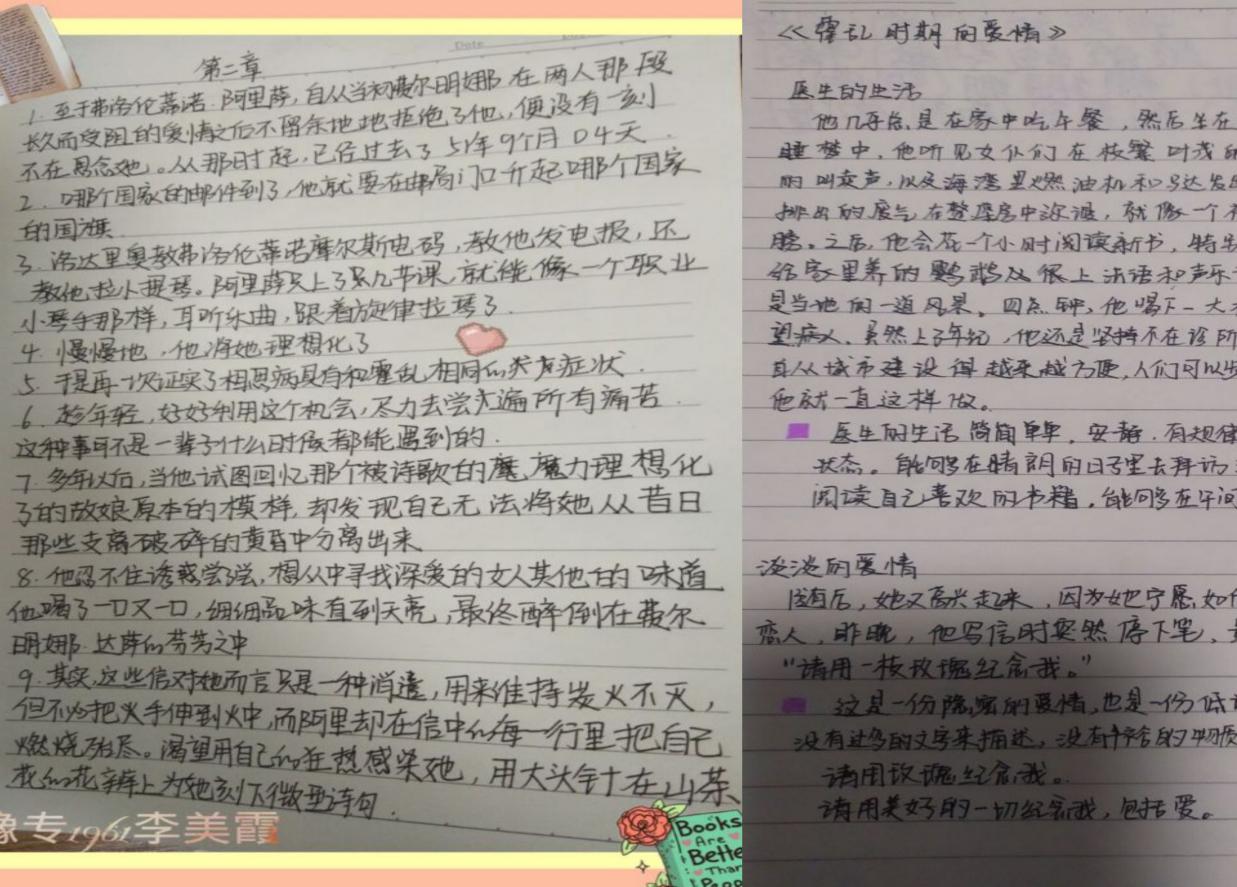 第二章
1. 至于弗洛伦蒂诺.阿里萨，自从当初费尔明娜在两人那段
长久而受阻的爱情之后不留余地地拒绝了他，便没有一刻
不在思念她。从那时起，已经过去了51年9个月04天.
2. 哪个国家的邮件到了，他就要在邮局门口升起哪个国家
的国旗
3. 洛达里奥教弗洛伦蒂诺摩尔斯电码，教他发电报，还
教他拉小提琴。阿里萨只上了几节课，就能像一个职业
小琴手那样，耳听乐曲，跟着旋律拉琴了.
4. 慢慢地，他将她理想化了
5. 于是再一次证实了相思病具有和霍乱相同的症状.
6. 趁年轻，好好利用这个机会，尽力去尝遍所有痛苦.
这种事可不是一辈子什么时候都能遇到的.
7. 多年以后，当他试图回忆那个被诗歌的魔魔力理想化
了的姑娘原本的模样，却发现自己无法将她从昔日
那些支离破碎的黄昏中分离出来
8. 他忍不住诱惑尝尝，想从中寻找深爱的女人其他的味道
他喝了一口又一口，细细品味直到天亮，最终醉倒在费尔
明娜.达萨的芬芳之中
9. 其实，这些信对她而言只是一种消遣，用来维持炭火不灭，
但不必把火手伸到火中，而阿里却在信中的每一行里把自己
燃烧殆尽。渴望用自己的狂热感染她，用大头针在山茶
花的花瓣上为她刻下微型诗句.
像专1961李美霞
Books
Are
Bette
Than
Peop
《霍乱时期的爱情》
医生的生活
他几乎总是在家中吃午餐，然后坐在
睡梦中，他听见女仆们在枝繁叶茂的
的叫卖声，以及海湾里燃油机和马达发出
排出的废气在整座房中弥漫，就像一个
膀。之后，他会花一个小时阅读新书，特
给家里养的鹦鹉上法语和声乐
是当地的一道风景。四点钟，他喝下一大
望病人。虽然上了年纪，他还是坚持不在诊所
自从城市建设得越来越方便，人们可以步
他就一直这样做。
医生的生活简简单单，安静.有规律
状态。能够在晴朗的日子里去拜访
阅读自己喜欢的书籍。能够在午间
淡淡的爱情
随后，她又高兴起来，因为她宁愿如
恋人，昨晚，他写信时突然停下笔，
“请用一枝玫瑰纪念我。”
这是一份隐密的爱情，也是一份低
没有过多的文字来描述，没有的物质
请用玫瑰纪念我。
请用美好的一切纪念我，包括爱。